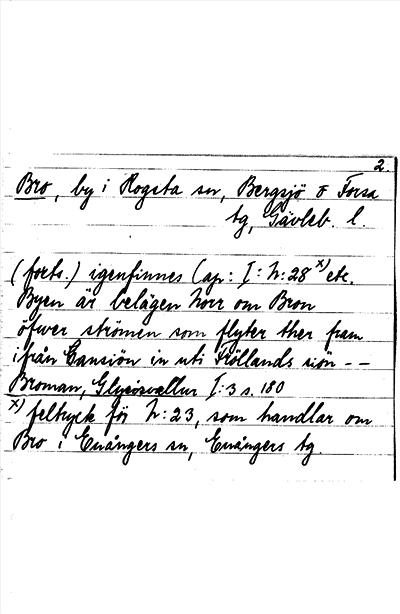 2.
Bro, by i Rogsta sn, Bergsjö o Forsa
tg, Gävleb. l.
(forts.) igenfinnes Cap: I: N: 28 x) etc.
Byen är belägen Norr om Bron
öfwer strömen som flyter ther fram
ifrån Cansiön in uti Fröllands siön --
Broman, Glysisvallur I:3 s. 180
x) feltryck för N: 23, som handlar om
Bro i Enångers sn, Enångers tg.